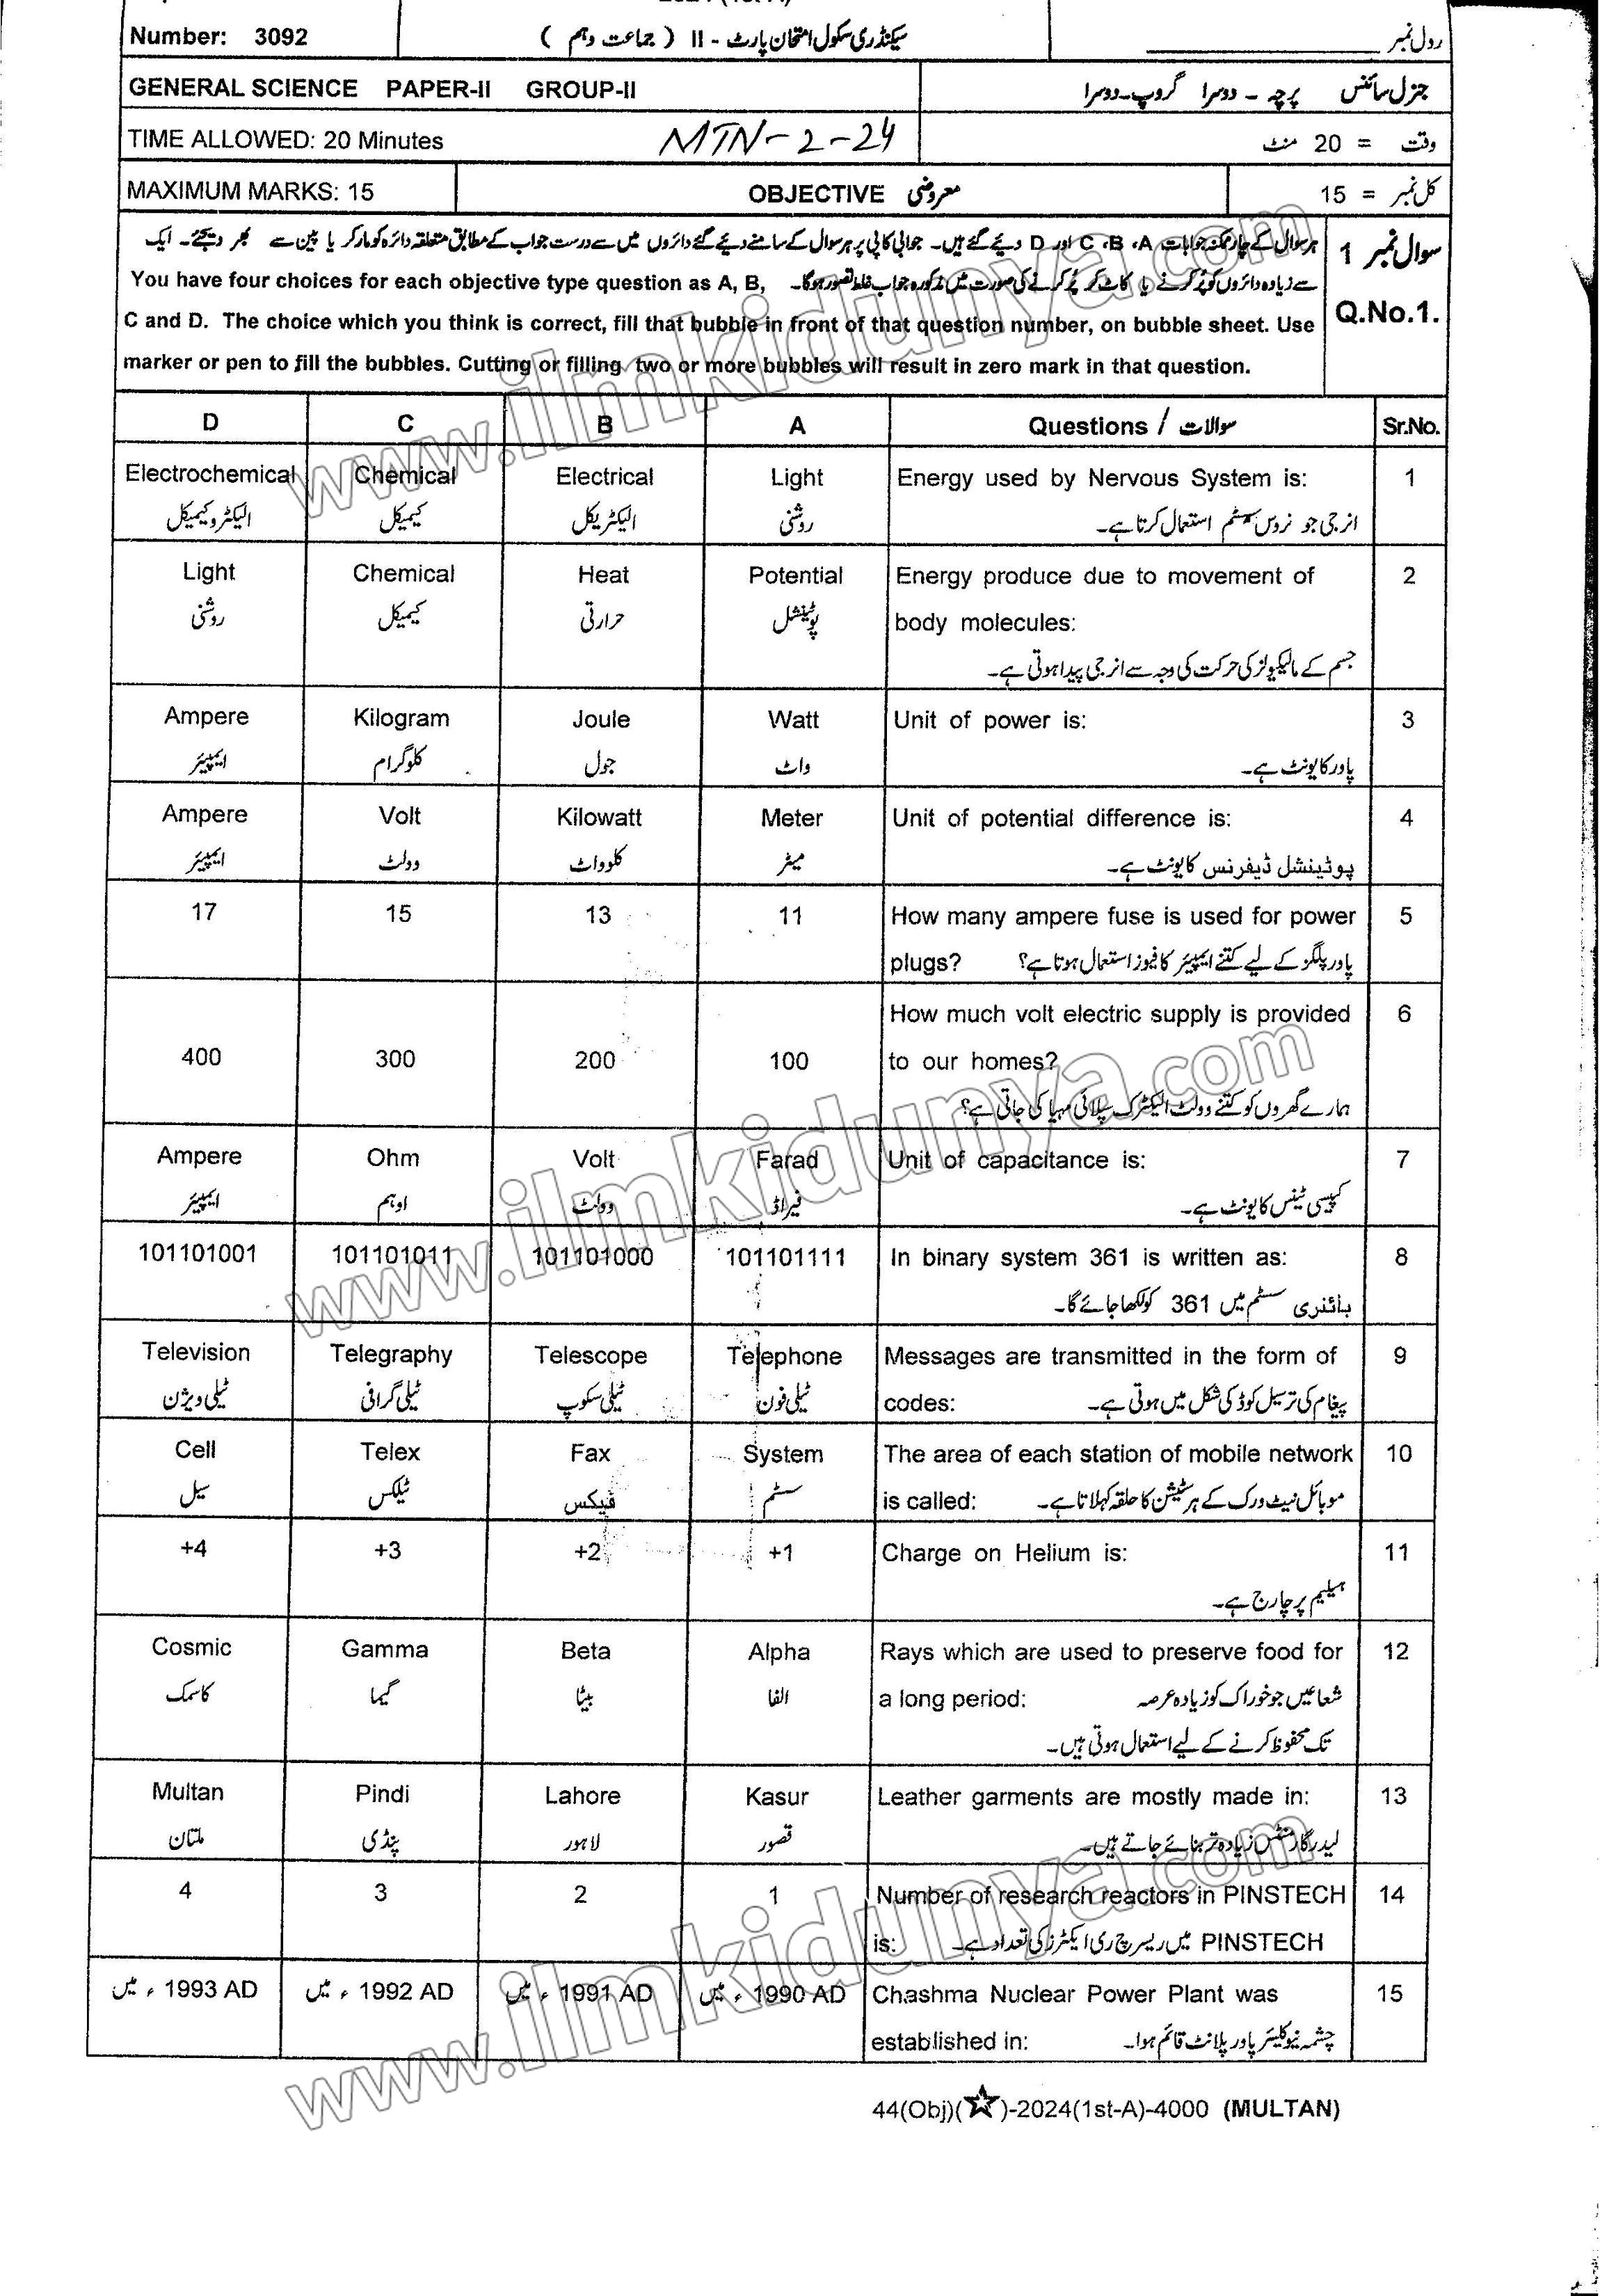 Number: 3092
سیکنڈری سکول امتحان پارٹ - II ( جماعت دہم )
رول نمبر
GENERAL SCIENCE PAPER-II GROUP-II
جنرل سائنس پرچہ - دوسرا گروپ-دوسرا
TIME ALLOWED: 20 Minutes
MTN-2-24
وقت = 20 منٹ
MAXIMUM MARKS: 15
OBJECTIVE معروضی
کل نمبر = 15
سوال نمبر 1
Q.No.1.
ہر سوال کے چار ممکنہ جوابات A، B، C اور D دیئے گئے ہیں۔ جوابی کاپی پر ہر سوال کے سامنے دیئے گئے دائروں میں سے درست جواب کے مطابق متعلقہ دائرہ کو مارکر یا پین سے بھر دیجئے۔ ایک
سے زیادہ دائروں کو پُر کرنے یا کاٹ کر پُر کرنے کی صورت میں مذکورہ جواب غلط تصور ہوگا۔ You have four choices for each objective type question as A, B,
C and D. The choice which you think is correct, fill that bubble in front of that question number, on bubble sheet. Use
marker or pen to fill the bubbles. Cutting or filling two or more bubbles will result in zero mark in that question.
D C B A Questions / سوالات Sr.No.
Electrochemical Chemical Electrical Light Energy used by Nervous System is: 1
الیکٹروکیمیکل کیمیکل الیکٹریکل روشنی انرجی جو نروس سسٹم استعمال کرتا ہے۔
Light Chemical Heat Potential Energy produce due to movement of 2
روشنی کیمیکل حرارتی پوٹینشل body molecules:
جسم کے مالیکیولز کی حرکت کی وجہ سے انرجی پیدا ہوتی ہے۔
Ampere Kilogram Joule Watt Unit of power is: 3
ایمپیئر کلوگرام جول واٹ پاور کا یونٹ ہے۔
Ampere Volt Kilowatt Meter Unit of potential difference is: 4
ایمپیئر وولٹ کلوواٹ میٹر پوٹینشل ڈیفرنس کا یونٹ ہے۔
17 15 13 11 How many ampere fuse is used for power 5
plugs? پاور پلگز کے لیے کتنے ایمپیئر کا فیوز استعمال ہوتا ہے؟
How much volt electric supply is provided 6
400 300 200 100 to our homes?
ہمارے گھروں کو کتنے وولٹ الیکٹرک سپلائی مہیا کی جاتی ہے؟
Ampere Ohm Volt Farad Unit of capacitance is: 7
ایمپیئر اوہم وولٹ فیراڈ کپیسی ٹینس کا یونٹ ہے۔
101101001 101101011 101101000 101101111 In binary system 361 is written as: 8
بائنری سسٹم میں 361 کو لکھا جائے گا۔
Television Telegraphy Telescope Telephone Messages are transmitted in the form of 9
ٹیلی ویژن ٹیلی گرافی ٹیلی سکوپ ٹیلی فون codes: پیغام کی ترسیل کوڈ کی شکل میں ہوتی ہے۔
Cell Telex Fax System The area of each station of mobile network 10
سیل ٹیلکس فیکس سسٹم is called: موبائل نیٹ ورک کے ہر سٹیشن کا حلقہ کہلاتا ہے۔
+4 +3 +2 +1 Charge on Helium is: 11
ہیلیم پر چارج ہے۔
Cosmic Gamma Beta Alpha Rays which are used to preserve food for 12
کاسمک گیما بیٹا الفا a long period: شعاعیں جو خوراک کو زیادہ عرصہ
تک محفوظ کرنے کے لیے استعمال ہوتی ہیں۔
Multan Pindi Lahore Kasur Leather garments are mostly made in: 13
ملتان پنڈی لاہور قصور لیدر گارمنٹس زیادہ تر بنائے جاتے ہیں۔
4 3 2 1 Number of research reactors in PINSTECH 14
is: PINSTECH میں ریسرچ ری ایکٹرز کی تعداد ہے۔
1993 AD ء میں 1992 AD ء میں 1991 AD ء میں 1990 AD ء میں Chashma Nuclear Power Plant was 15
established in: چشمہ نیوکلیئر پاور پلانٹ قائم ہوا۔
44(Obj)(☆)-2024(1st-A)-4000 (MULTAN)
www.ilmkidunya.com
www.ilmkidunya.com
www.ilmkidunya.com